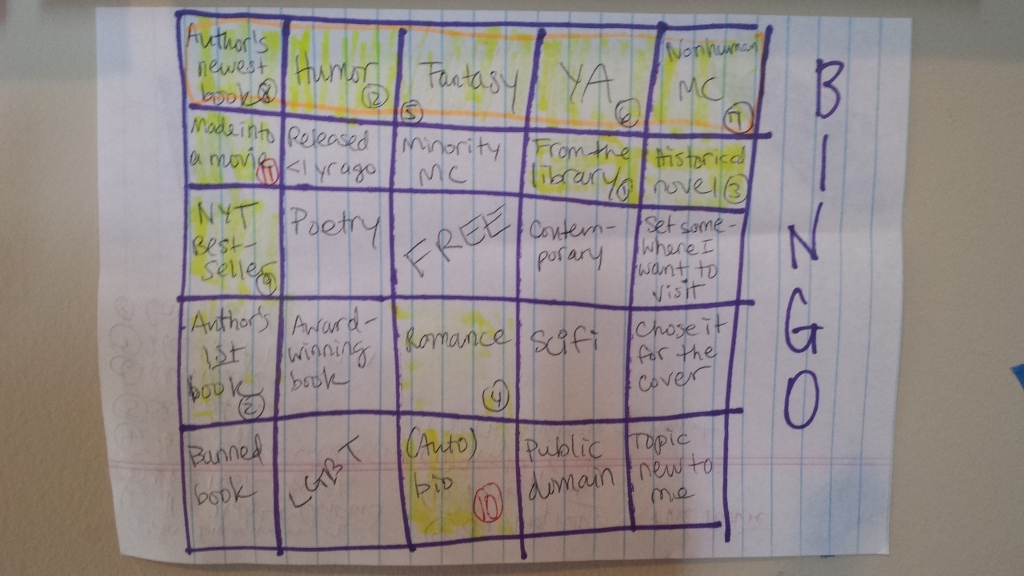 Author's
newest
book 8
Humor
12
Fantasy
5
YA
6
Nonhuman
MC
7
Made into
a movie
11
Released
<1 yr ago
Minority
MC
From the
library 1
Historical
novel 3
NYT
Best-
seller
9
Poetry
FREE
Contem-
porary
Set some-
where I
want to
visit
Author's
1st
book
2
Award-
winning
book
Romance
4
Scifi
Chose it
for the
cover
Banned
book
LGBT
(Auto)
bio
10
Public
domain
Topic
new to
me
B
I
N
G
O